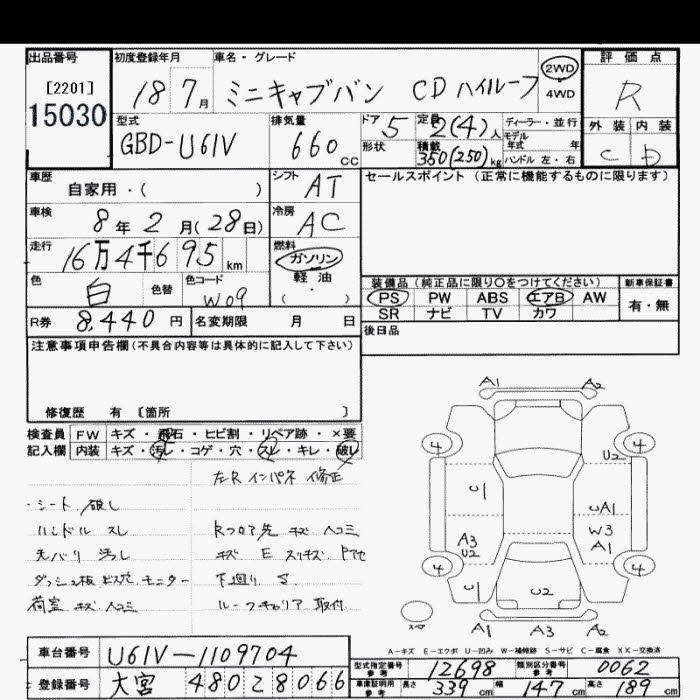 出品番号 初度登録年月 車名・グレード 評価点
[2201] 18 7月 ミニキャブバン CD ハイルーフ 2WD R
15030 4WD
型式 排気量 ドア 定員 ディーラー・並行 外装 内装
GBD-U61V 660cc 5 2(4)人 モデル年式 年 C D
形状 積載 350(250)kg ハンドル 左・右
車歴 シフト セールスポイント (正常に機能するものに限ります)
自家用・( ) AT
車検 冷房
8年2月(28日) AC
走行 燃料
16万4千695km ガソリン
軽油
・( )
色 色替 色コード
白 W09
装備品 (純正品に限り○をつけてください) 新車保証書
PS PW ABS エアB AW 有・無
SR ナビ TV カワ
R券 8,440円 名変期限 月 日
後日品
注意事項申告欄(不具合内容等は具体的に記入して下さい)
修復歴 有 [箇所 ]
検査員 FW キズ・飛石・ヒビ割・リペア跡・×要
記入欄 内装 キズ・汚レ・コゲ・穴・スレ・キレ・破レ
左R インパネ 修正
・シート 破レ
ハンドル スレ Rフロア先 キズ ヘコミ
天バリ 汚レ キズ E スリキズ
ダッシュ板 ビス穴 モニター 下廻り S
荷室 キズ ヘコミ ルーフキャリア 取付
A1 A2
4 4
U2
U1 UA1
A3 W3
U2 A1
4 4
U1 U2
スペア A1 A3 A2
A-キズ E-エクボ U-凹み W-補修跡 S-サビ C-腐食 XX-交換済
車台番号 U61V-1109704
型式指定番号 参考 12698 類別区分番号 参考 0062
登録番号 大宮 480 2 8066
車庫証明用 参考 長さ 339cm 幅 147cm 高さ 189cm